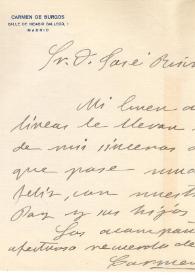 CARMEN DE BURGOS
CALLE DE NICASIO GALLEGO, 1
MADRID
Sr. D. José
Mi buen a
líneas le llevan
de mis sinceros d
que pase una
feliz, con nuest
Paz y sus hijos
Los acompañ
afectuoso recuerdo de
Carmen